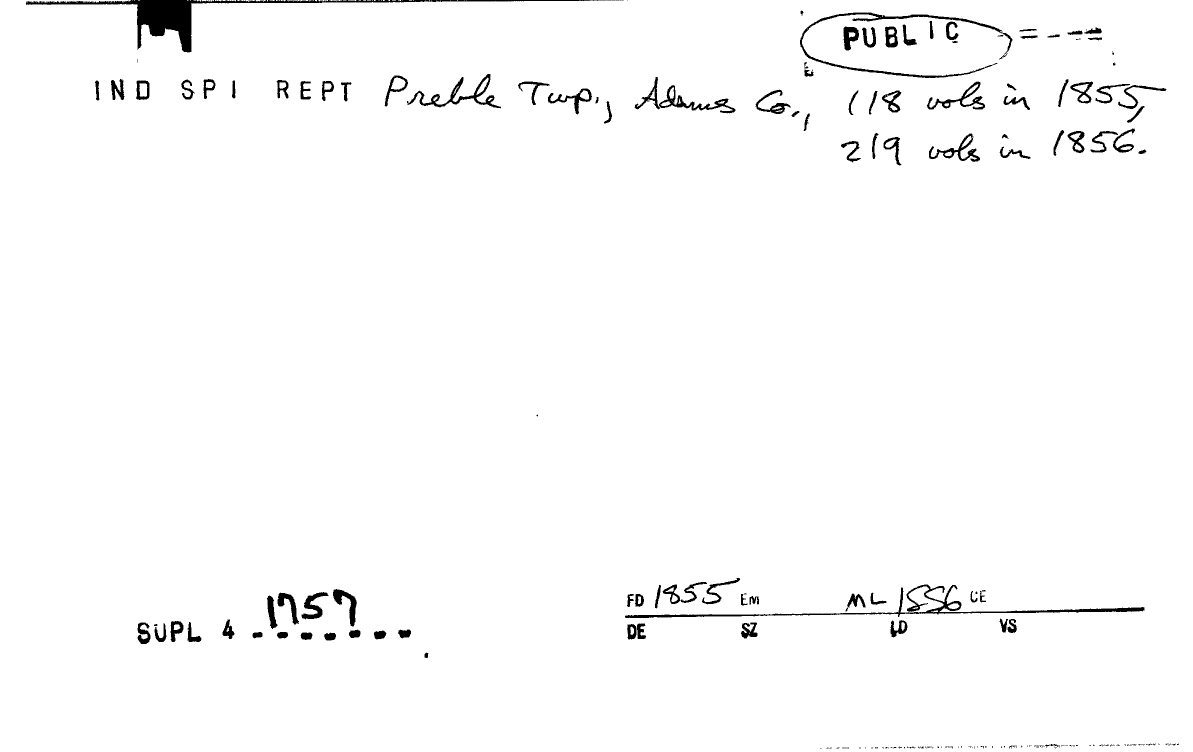 PUBLIC
IND SPI REPT Preble Twp., Adams Co., 118 vols in 1855,
219 vols in 1856.
SUPL 4 1757
FD 1855 EM ML 1856 CE
DE SZ LD VS